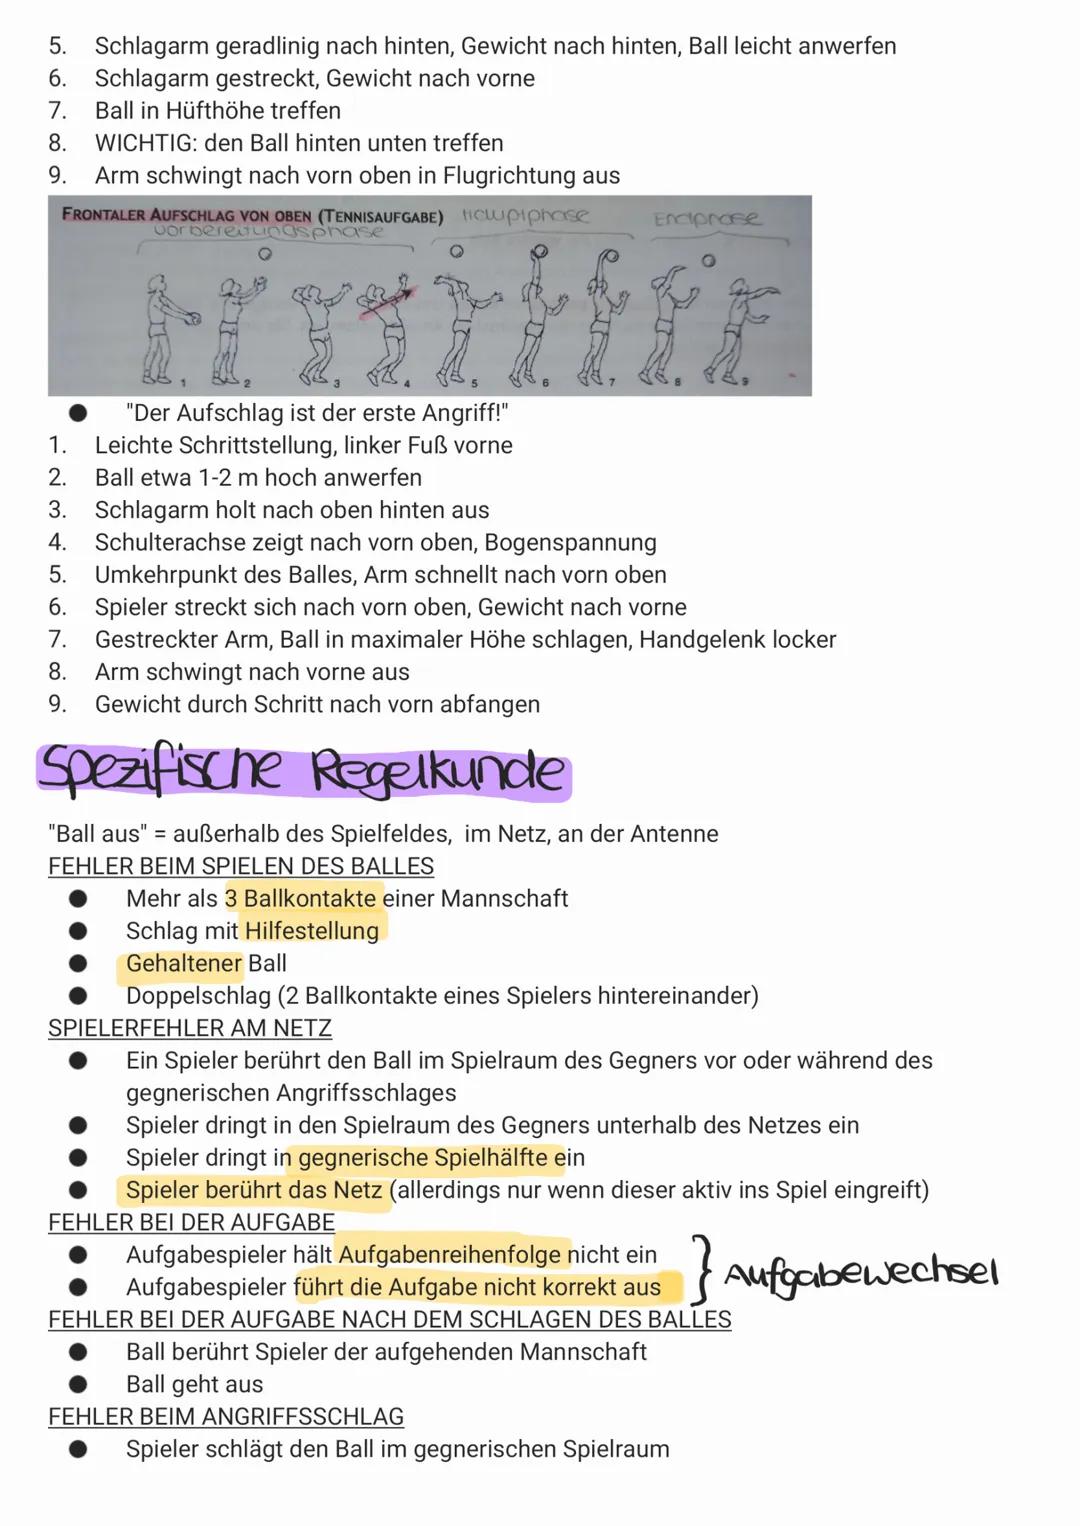 5. Schlagarm geradlinig nach hinten, Gewicht nach hinten, Ball leicht anwerfen
6. Schlagarm gestreckt, Gewicht nach vorne
7. Ball in Hüfthöhe treffen
8. WICHTIG: den Ball hinten unten treffen
9. Arm schwingt nach vorn oben in Flugrichtung aus
FRONTALER AUFSCHLAG VON OBEN (TENNISAUFGABE) Hauptphase Endphase
Vorbereitungsphase
1 2 3 4 5 6 7 8 9
● "Der Aufschlag ist der erste Angriff!"
1. Leichte Schrittstellung, linker Fuß vorne
2. Ball etwa 1-2 m hoch anwerfen
3. Schlagarm holt nach oben hinten aus
4. Schulterachse zeigt nach vorn oben, Bogenspannung
5. Umkehrpunkt des Balles, Arm schnellt nach vorn oben
6. Spieler streckt sich nach vorn oben, Gewicht nach vorne
7. Gestreckter Arm, Ball in maximaler Höhe schlagen, Handgelenk locker
8. Arm schwingt nach vorne aus
9. Gewicht durch Schritt nach vorn abfangen
Spezifische Regelkunde
"Ball aus" = außerhalb des Spielfeldes, im Netz, an der Antenne
FEHLER BEIM SPIELEN DES BALLES
● Mehr als 3 Ballkontakte einer Mannschaft
● Schlag mit Hilfestellung
● Gehaltener Ball
● Doppelschlag (2 Ballkontakte eines Spielers hintereinander)
SPIELERFEHLER AM NETZ
● Ein Spieler berührt den Ball im Spielraum des Gegners vor oder während des
gegnerischen Angriffsschlages
● Spieler dringt in den Spielraum des Gegners unterhalb des Netzes ein
● Spieler dringt in gegnerische Spielhälfte ein
● Spieler berührt das Netz (allerdings nur wenn dieser aktiv ins Spiel eingreift)
FEHLER BEI DER AUFGABE
● Aufgabespieler hält Aufgabenreihenfolge nicht ein
● Aufgabespieler führt die Aufgabe nicht korrekt aus
} Aufgabewechsel
FEHLER BEI DER AUFGABE NACH DEM SCHLAGEN DES BALLES
● Ball berührt Spieler der aufgehenden Mannschaft
● Ball geht aus
FEHLER BEIM ANGRIFFSSCHLAG
● Spieler schlägt den Ball im gegnerischen Spielraum